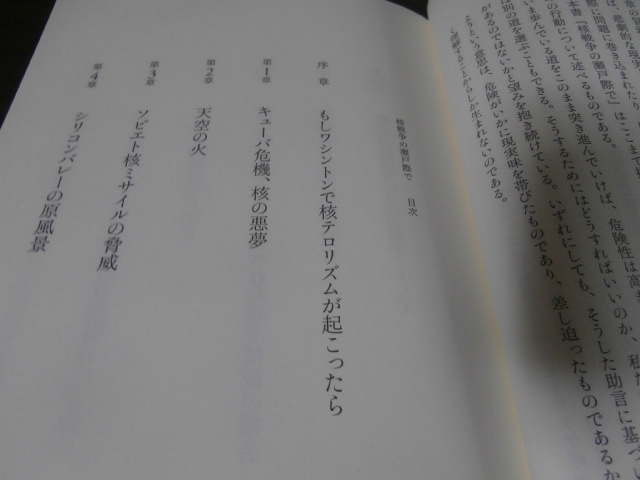 は、悲劇的な現実
際に問題に巻き込まれたり
本書『核戦争の瀬戸際で』はここま
の行動について述べるものである。
いま歩んでいる道をこのまま突き進んでいけば、危険性は高
は別の道を選ぶこともできる。そうするためにはどうすればいいのか、私た
があるのではないかと望みを抱き続けている。いずれにしても、そうした助言に基づ
ようという意思は、危険がいかに現実味を帯びたものであり、差し迫ったものであるか
理解することからしか生まれないのである。
核戦争の瀬戸際で 目次
序章 もしワシントンで核テロリズムが起こったら
第1章 キューバ危機、核の悪夢
第2章 天空の火
第3章 ソビエト核ミサイルの脅威
第4章 シリコンバレーの原風景